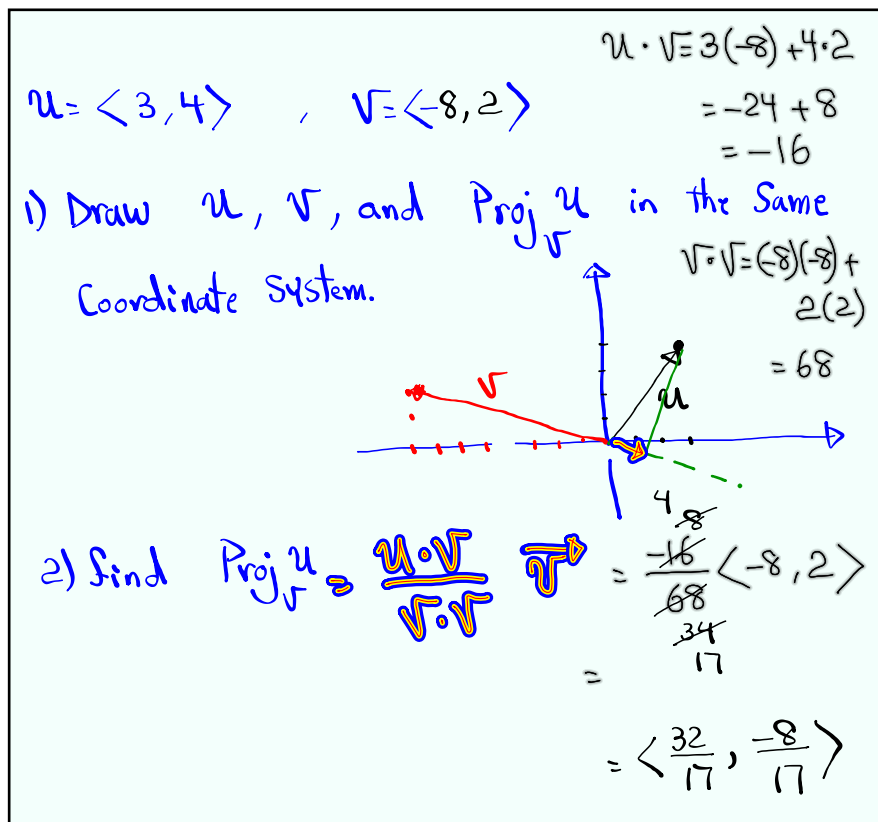 u = <3, 4> , v = <-8, 2>
u · v = 3(-8) + 4·2
= -24 + 8
= -16
1) Draw u, v, and Proj_v u in the Same
Coordinate System.
v·v = (-8)(-8) +
2(2)
= 68
v
u
2) find Proj_v u = (u·v)/(v·v) v⃗ = -16/68 <-8, 2>
4 8
34
17
=
= <32/17, -8/17>